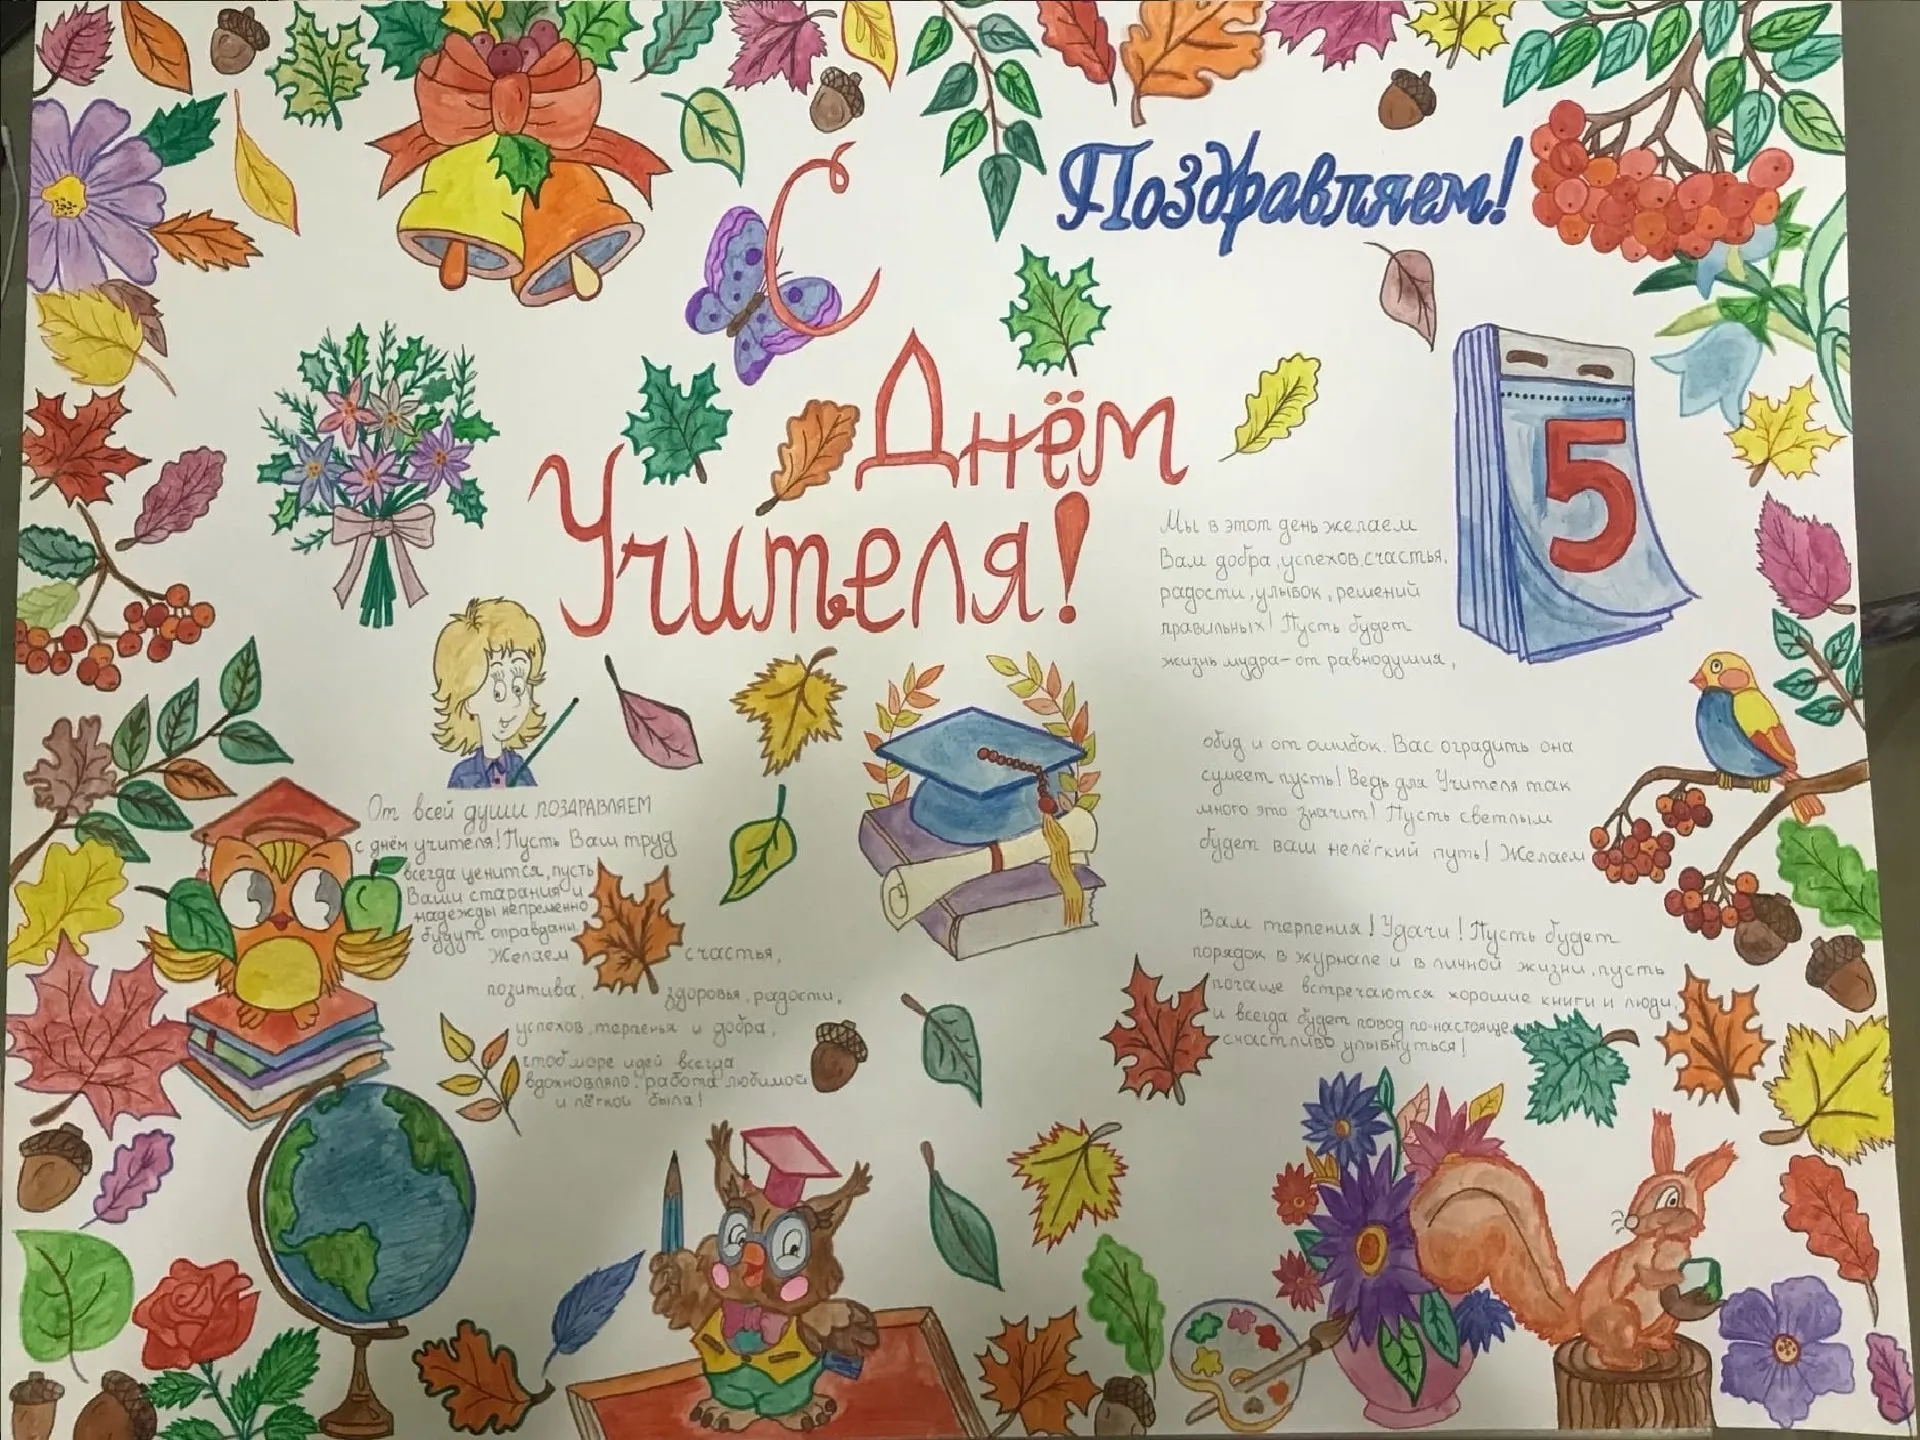 Поздравляем!
С
Днём
Учителя!
5
Мы в этот день желаем
Вам добра, успехов, счастья,
радости, улыбок, решений
правильных! Пусть будет
жизнь мудра – от равнодушия,
обид и от ошибок. Вас оградить она
сумеет пусть! Ведь для Учителя так
много это значит! Пусть светлым
будет ваш нелёгкий путь! Желаем
Вам терпения! Удачи! Пусть будет
порядок в журнале и в личной жизни, пусть
почаще встречаются хорошие книги и люди,
и всегда будет повод по-настоящему
счастливо улыбнуться!
От всей души ПОЗДРАВЛЯЕМ
с днём учителя! Пусть Ваш труд
всегда ценится, пусть
Ваши старания и
надежды непременно
будут оправданы.
Желаем счастья,
позитива, здоровья, радости,
успехов, терпенья и добра,
чтоб море идей всегда
вдохновляло, работа любимой
и лёгкой была!